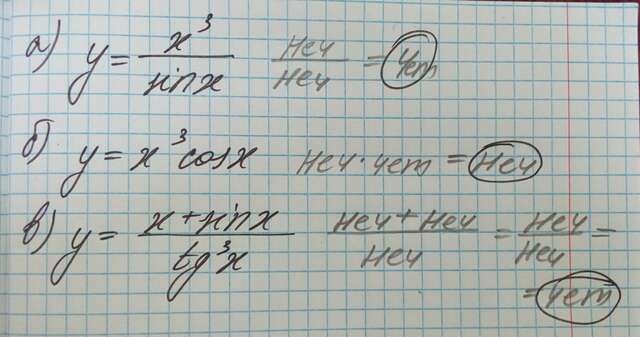 а) y = x³/sin x неч/неч = чет
б) y = x³cosx неч·чет = неч
в) y = x+sin x/tg³x неч+неч/неч = неч/неч =
= чет